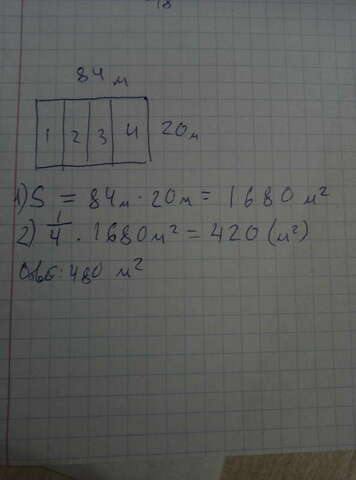 84 м
1 2 3 4 20м
1) S = 84м · 20м = 1680 м²
2) 1/4 · 1680м² = 420 (м²)
Ответ: 480 м²